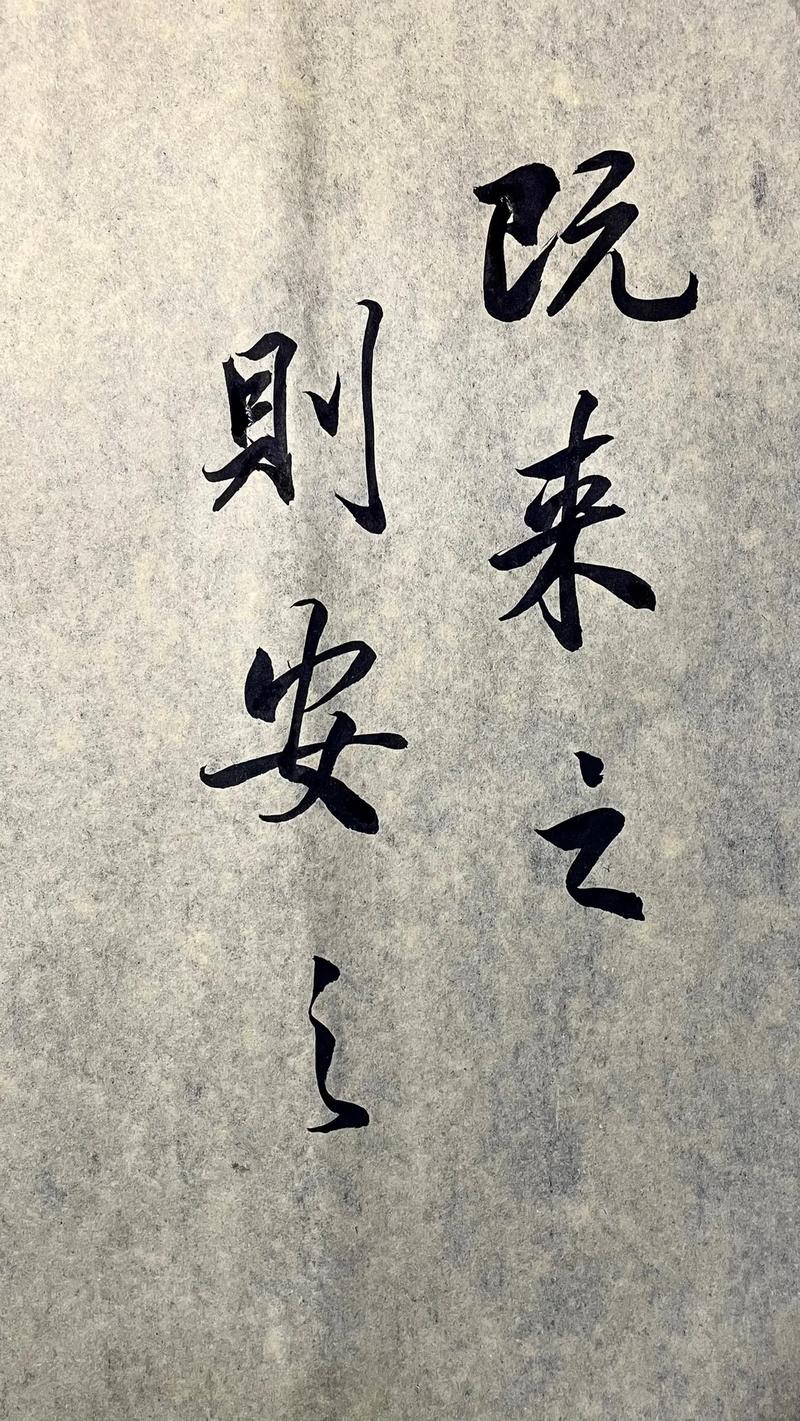 既来之
則安之